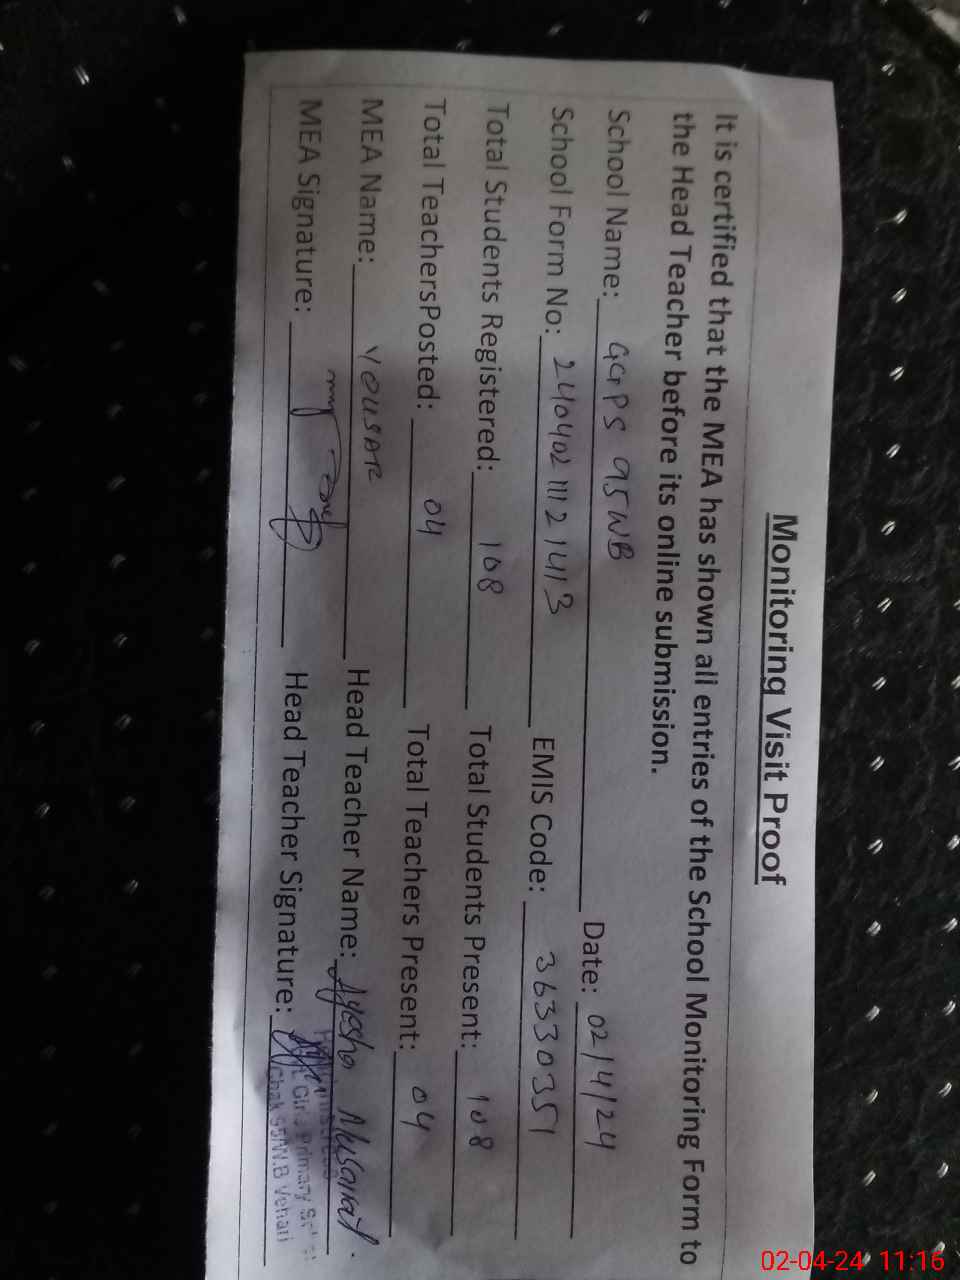 Monitoring Visit Proof
It is certified that the MEA has shown all entries of the School Monitoring Form to
the Head Teacher before its online submission.
School Name: GGPS 95WB Date: 02/4/24
School Form No: 24040211121413 EMIS Code: 36330351
Total Students Registered: 108 Total Students Present: 108
Total TeachersPosted: 04 Total Teachers Present: 04
MEA Name: YOUSAR Head Teacher Name: Ayesha Musarat.
MEA Signature: Head Teacher Signature:
Primary
Chak 95/W.B Vehari
02-04-24 11:16